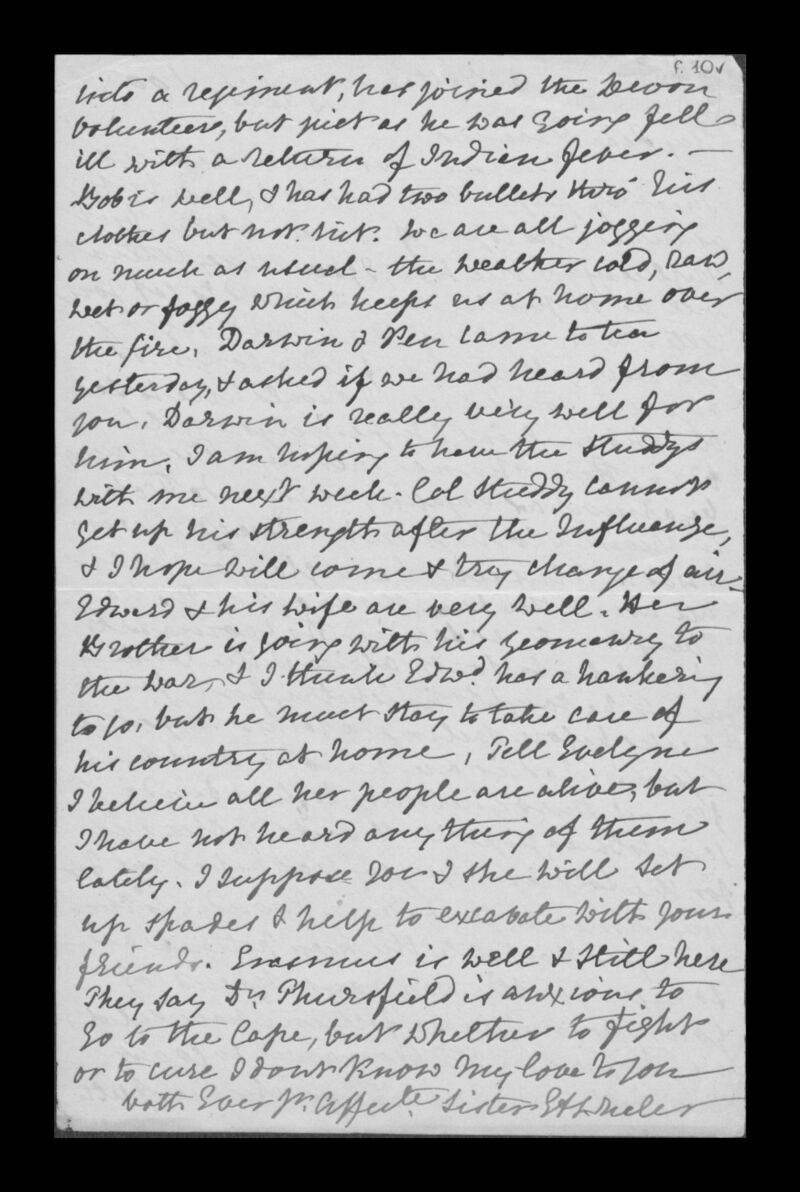 f. 10v
into a regiment, has joined the Devon
Volunteers, but just as he was going fell
ill with a return of Indian fever. —
Bob is well, & has had two bullets thro' his
clothes but not hit. We are all jogging
on much as usual - the weather cold, raw,
wet or foggy which keeps us at home over
the fire. Darwin & Pen came to tea
yesterday, & asked if we had heard from
you. Darwin is really very well for
him. I am hoping to have the Studdys
with me next week. Col Studdy cannot
get up his strength after the Influenza,
& I hope will come & try change of air.
Edward & his wife are very well. Her
Brother is going with his yeomanry to
the war, & I think Edwd. has a hankering
to go, but he must stay to take care of
his country at home, Tell Evelyne
I believe all her people are alive, but
I have not heard anything of them
lately. I suppose you & she will set
up spades & help to excavate with your
friends. Erasmus is well & still here
They say Dr. Thursfield is anxious to
go to the Cape, but whether to fight
or to cure I dont know My love to you
both Ever yr. Affecte. Sister E A Wheler